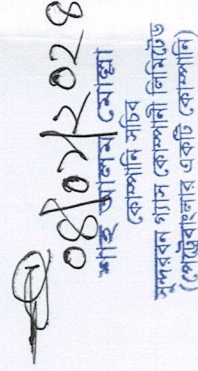 ০৪/০৭/২০২৪
শাহ আলম মোল্লা
কোম্পানি সচিব
সুন্দরবন গ্যাস কোম্পানী লিমিটেড
(পেট্রোবাংলার একটি কোম্পানি)